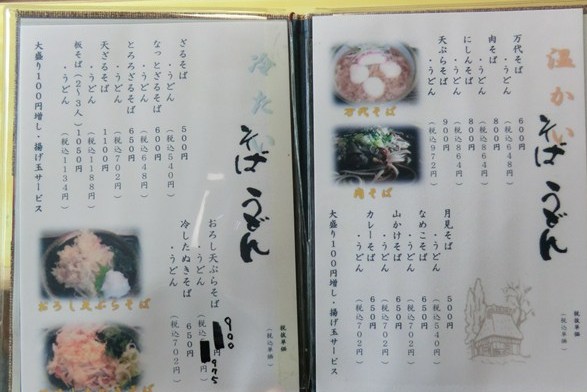 温かい
そばうどん
万代そば 600円
（税込648円）
肉そば 800円
・うどん（税込864円）
にしんそば 800円
・うどん（税込864円）
天ぷらそば 900円
・うどん（税込972円）
月見そば 500円
・うどん（税込540円）
なめこそば 650円
・うどん（税込702円）
山かけそば 650円
・うどん（税込702円）
カレーそば 650円
・うどん（税込702円）
大盛り100円増し・揚げ玉サービス
万代そば
肉そば
税抜単価
（税込単価）
冷たい
そばうどん
ざるそば 500円
・うどん（税込540円）
なっとざるそば 600円
・うどん（税込648円）
とろろざるそば 650円
・うどん（税込702円）
天ざるそば 1100円
・うどん（税込1188円）
板そば（2〜3人）1050円
・うどん（税込1134円）
大盛り100円増し・揚げ玉サービス
おろし天ぷらそば 900
・うどん（税込 975
冷したぬきそば 650円
・うどん（税込702円）
おろし天ぷらそば
税抜単価
（税込単価）